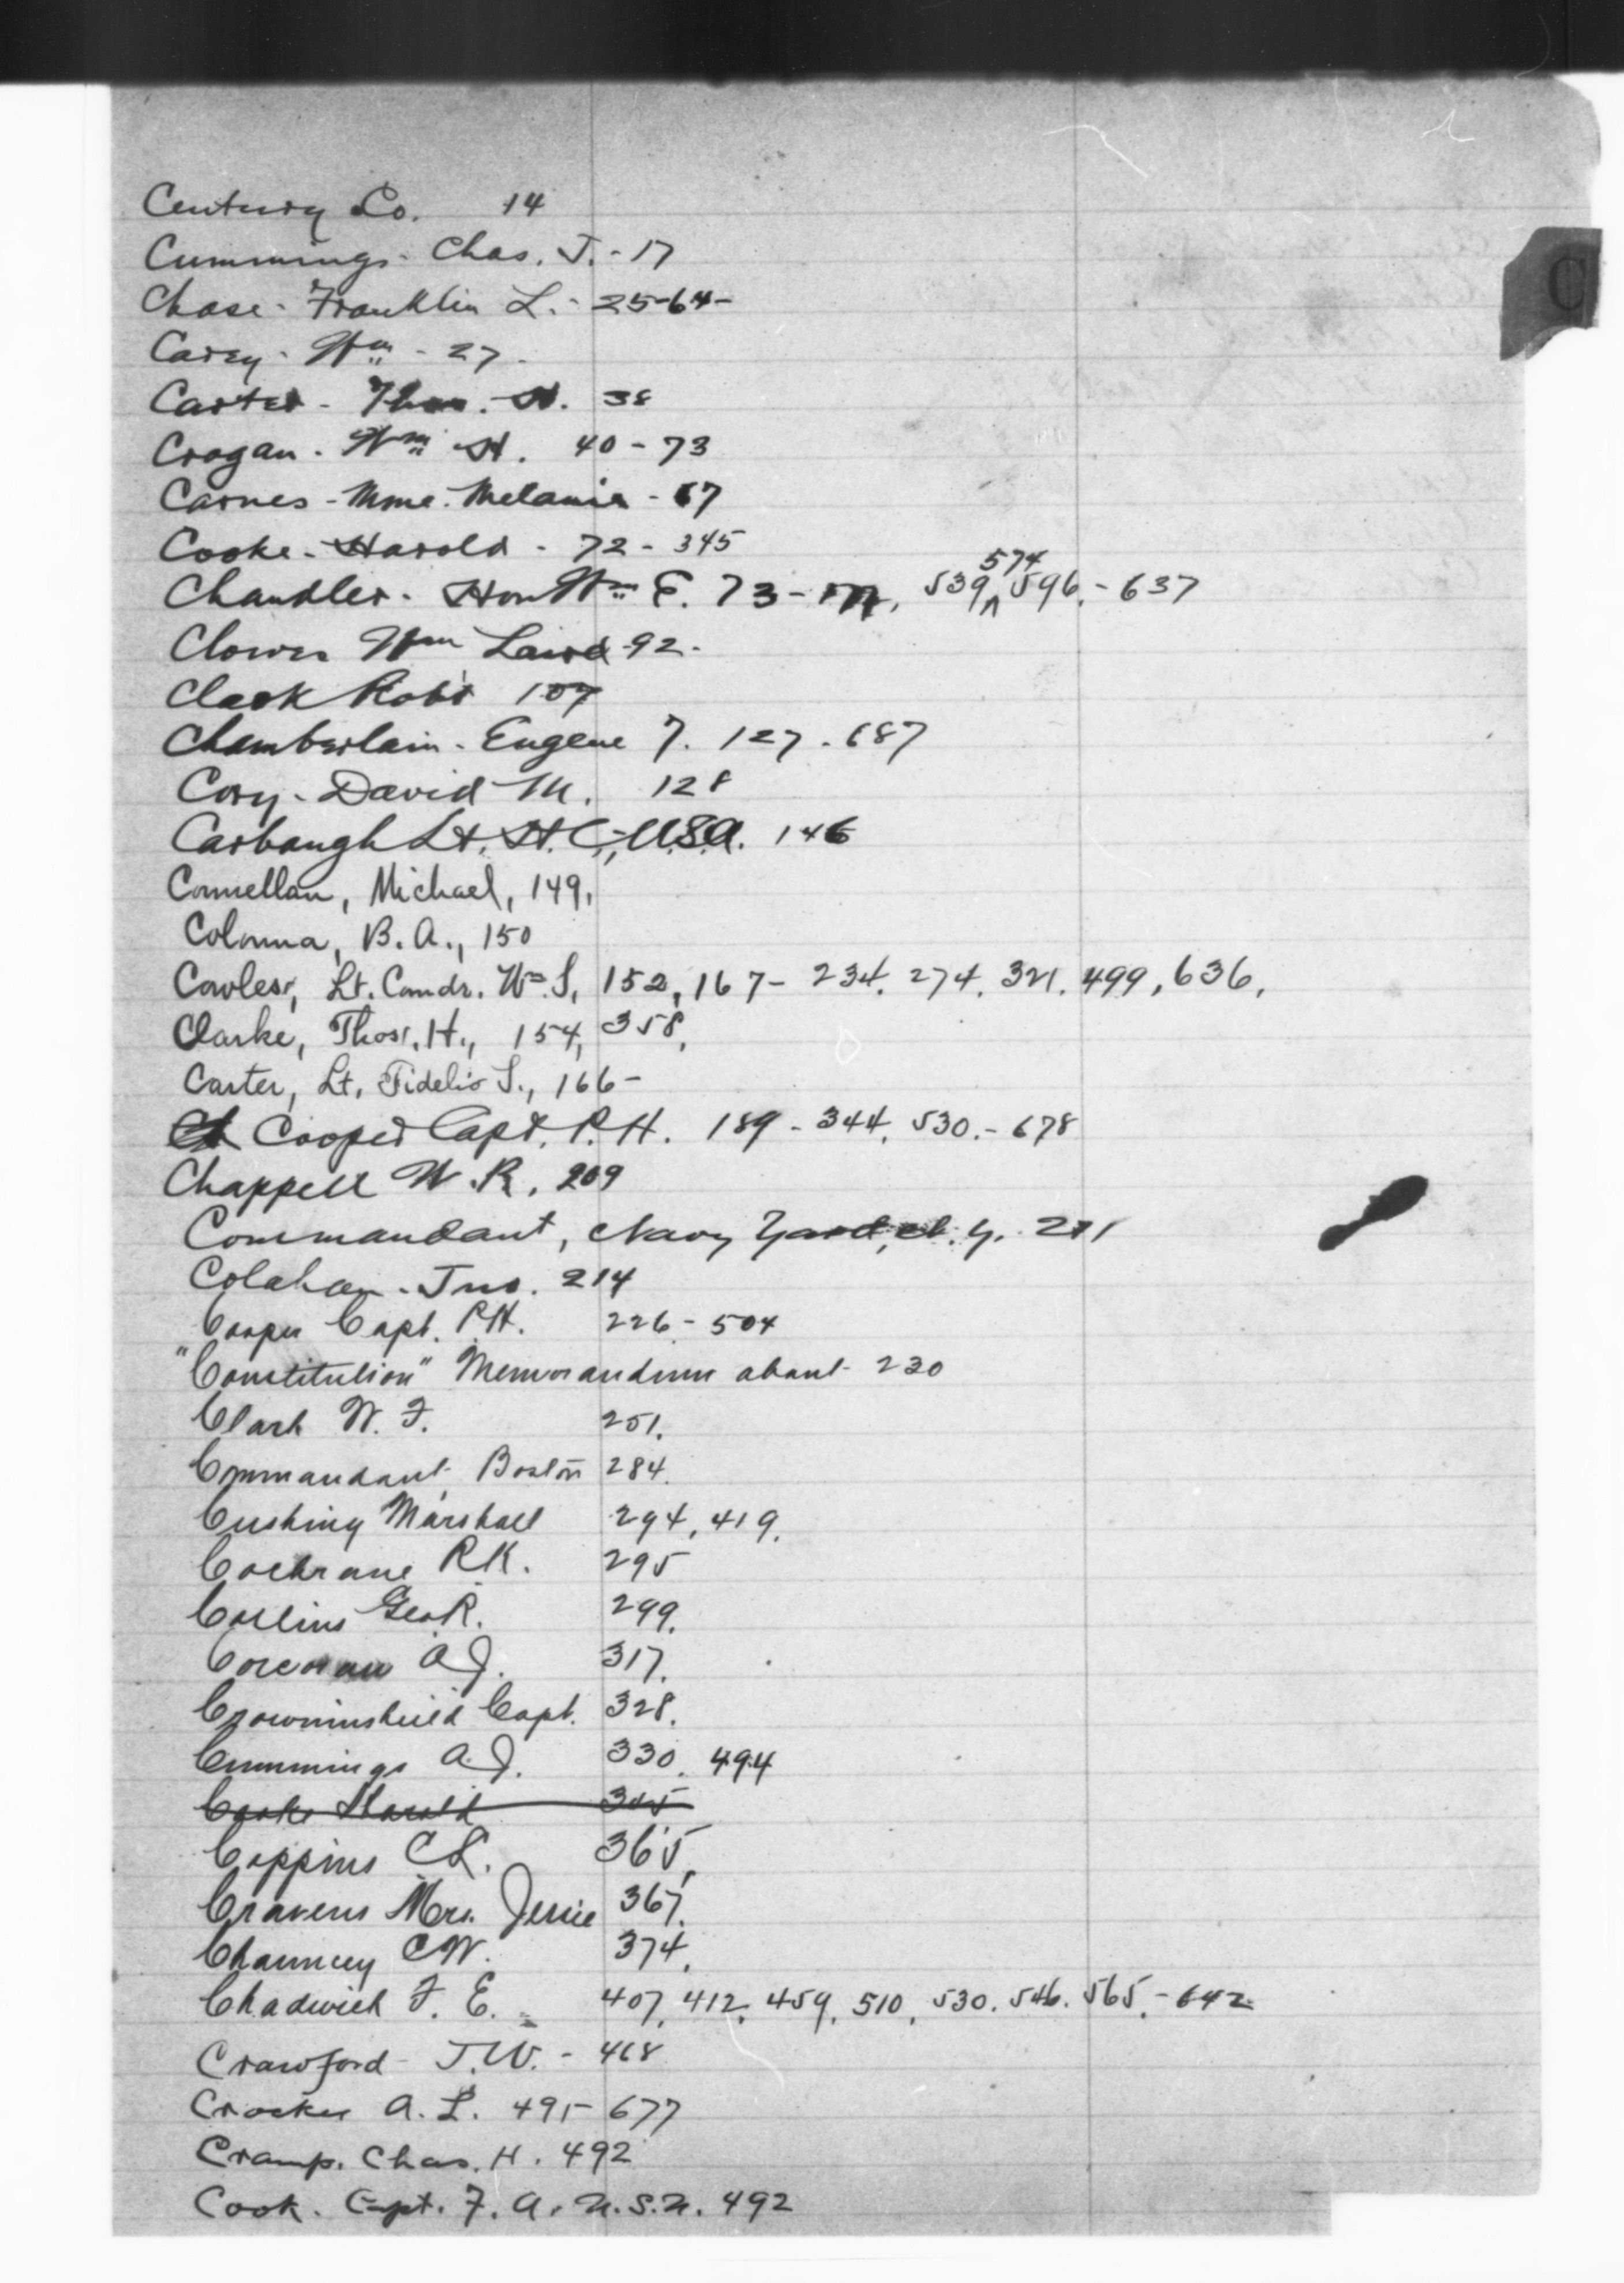 C
Century Co. 14
Cummings - Chas. J. - 17
Chase - Franklin L. - 25-64-
Carey - Wm - 27 -
Carter - Thos. H. 38
Crogan - Wm H. 40 - 73
Carnes - Mme. Melanie - 67
Cooke - Harold - 72 - 345
Chandler - Hon Wm E. 73 - 539, 574 596 - 637
Clowes Wm Laird - 92 -
Clark Robt 107
Chamberlain - Eugene T. 127 - 687
Cory - David M. 128
Carbaugh Lt. H. C., U.S.A. 146
Connellan, Michael, 149,
Colonna, B. A., 150
Cowles, Lt. Comdr. Wm. S, 152, 167 - 234, 274, 321, 499, 636,
Clarke, Thos. H., 154, 358,
Carter, Lt. Fidelio S., 166 -
Cooper Capt. P. H. 189 - 344, 530. - 678
Chappell W. R. 209
Commandant, Navy Yard, N. Y. 211
Colahan - Jno. 214
Cooper Capt. P.H. 226 - 504
"Constitution" Memorandum about 230
Clark W. F. 251.
Commandant, Boston 284.
Cushing Marshall 294, 419.
Cochrane R.K. 295
Collins Geo R. 299.
Corcoran A J. 317.
Crowninshield Capt. 328.
Cummings A. J. 330, 494
Cooke Harold 345
Coppins C L. 365,
Cravens Mrs. Jessie 367.
Chauncey C W. 374.
Chadwick F. E. 407, 412, 459, 510, 530. 546. 565, - 642
Crawford - J. W. - 468
Crocker A. L. 495- 677
Cramp. Chas. H. 492
Cook. Capt. F. A. U.S.N. 492